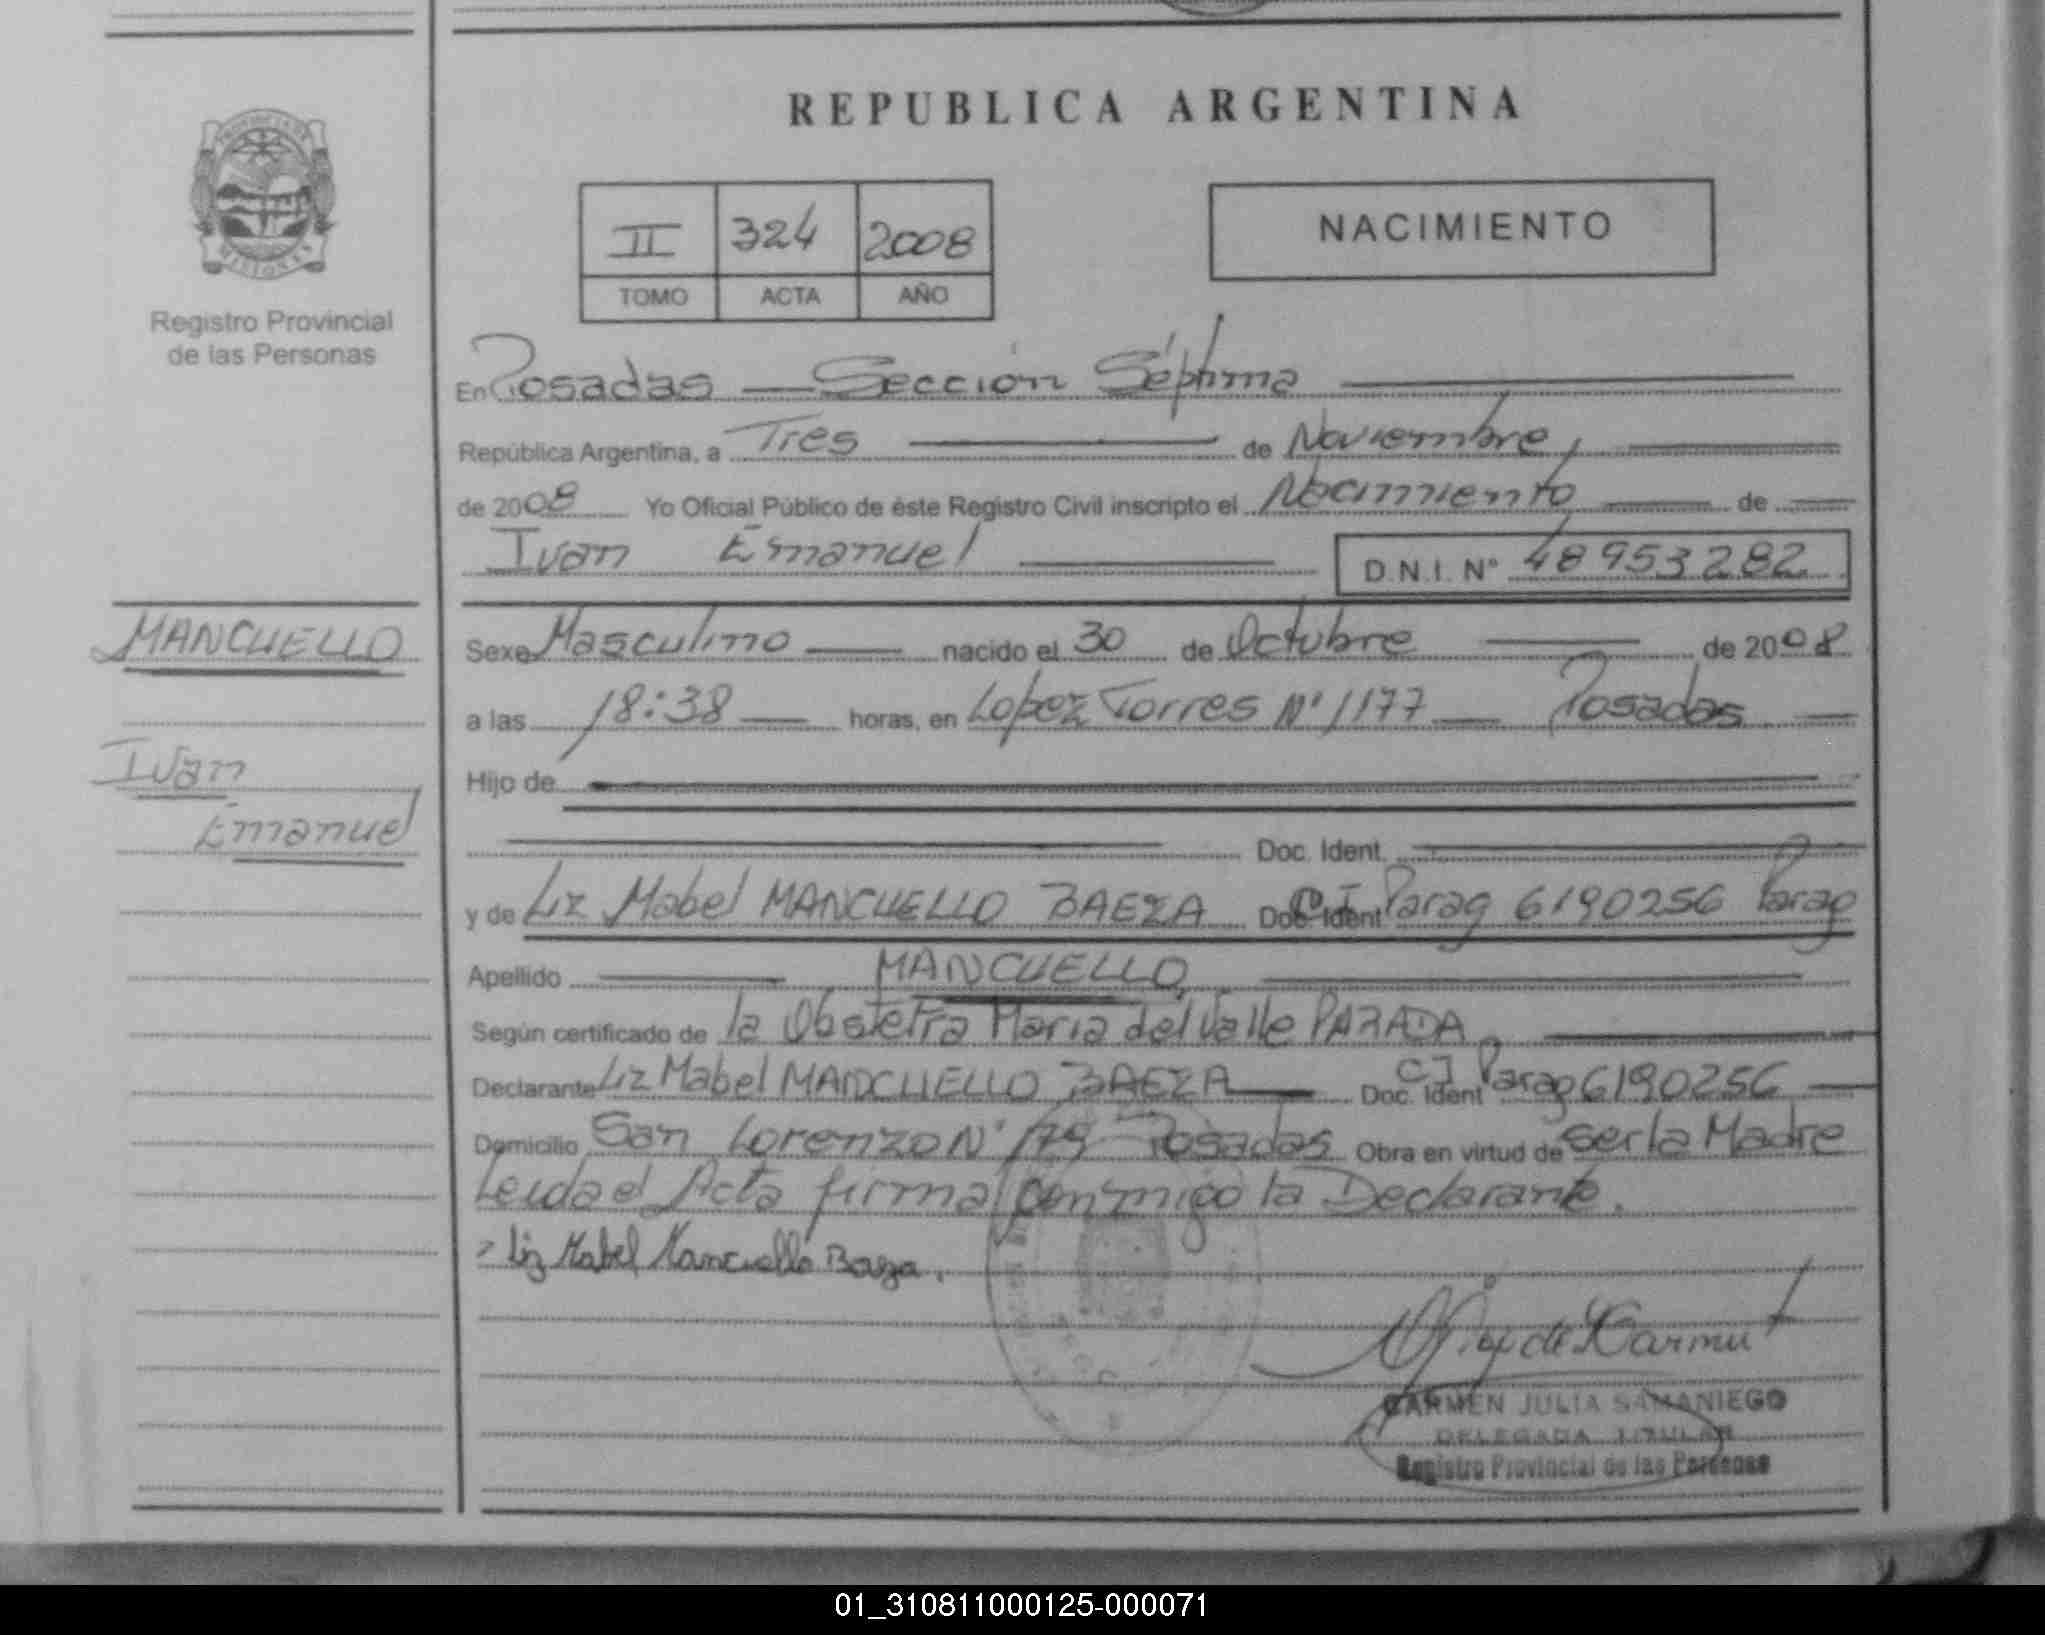 REPUBLICA ARGENTINA
PROVINCIA DE
MISIONES
Registro Provincial
de las Personas
II 324 2008
TOMO ACTA AÑO
NACIMIENTO
En Posadas — Sección Séptima
República Argentina, a Tres de Noviembre,
de 2008 Yo Oficial Público de éste Registro Civil inscripto el Nacimiento de
Ivan Emanuel D.N.I. Nº 48953282
MANCUELLO
Ivan
Emanuel
Sexo Masculino nacido el 30 de Octubre de 2008
a las 18:38 horas, en Lopez Torres Nº 1177 — Posadas
Hijo de
Doc. Ident.
y de Liz Mabel MANCUELLO BAEZA Doc. Ident CI Parag 6190256 Parag
Apellido MANCUELLO
Según certificado de la Obstetra Maria del Valle PARADA
Declarante Liz Mabel MANCUELLO BAEZA Doc. Ident CI Parag 6190256
Domicilio San Lorenzo Nº 179 Posadas Obra en virtud de ser la Madre
Leida el Acta firma conmigo la Declarante.
Liz Mabel Mancuello Baeza.
CARMEN JULIA SAMANIEGO
DELEGADA TITULAR
Registro Provincial de las Personas
01_310811000125-000071